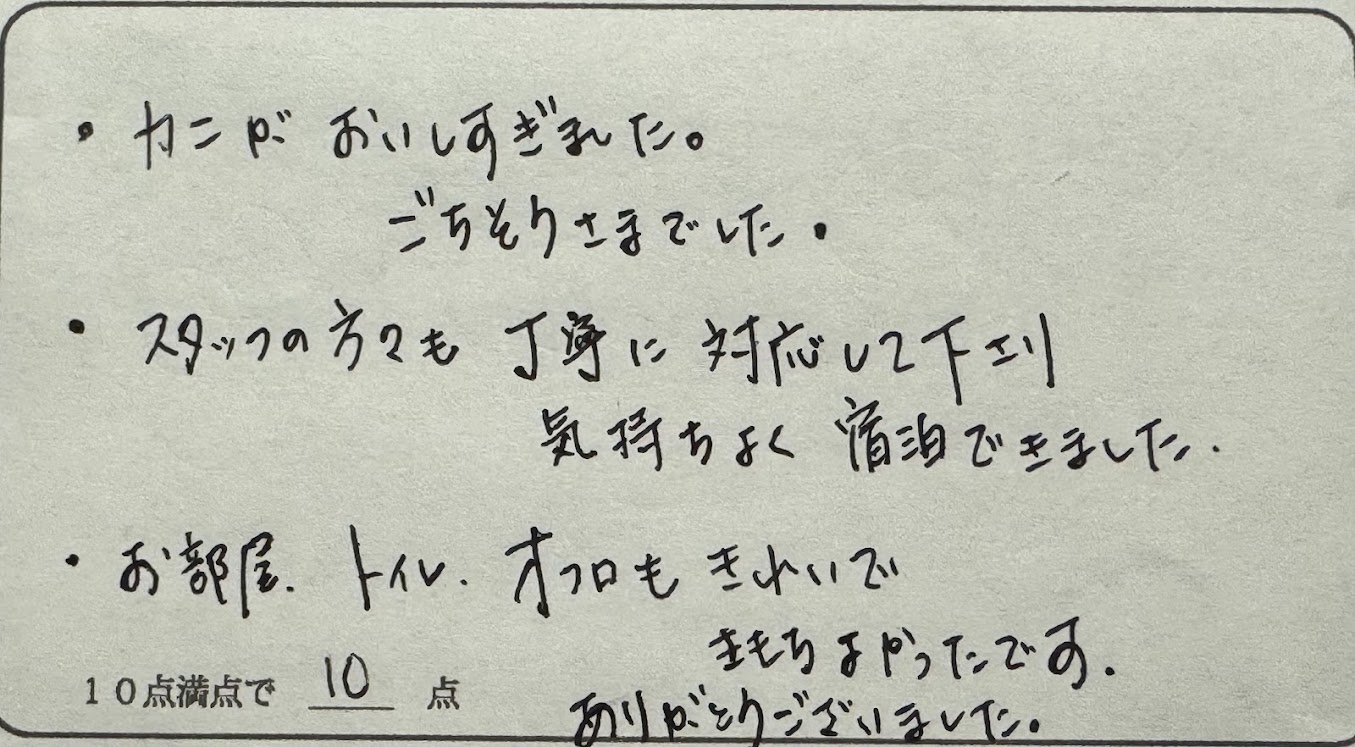 ・カニが おいしすぎました。
ごちそうさまでした.
・スタッフの方々も 丁寧に 対応して下さり
気持ちよく 宿泊できました.
・お部屋. トイレ. オフロも きれいで
きもちよかったです.
10点満点で 10 点
ありがとうございました。